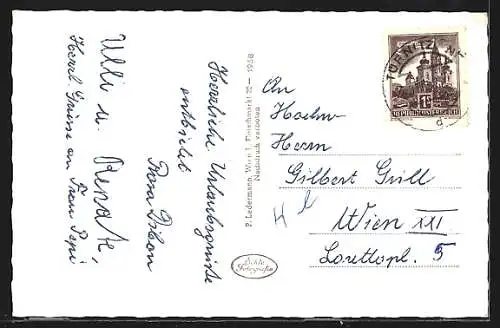 Herzliche Urlaubsgrüße
entbietet
Rosa
Ulli u. Renate,
Herzl. Grüße an Frau Pepi
P. Ledermann, Wien I, Fleischmarkt 20 — 1958
Nachdruck verboten
Echte
Fotografie
An
Hochw.
Herrn
Gilbert Grill
Wien XXI
Lorettopl. 5
TÜRNITZ
1S
REPUBLIK ÖSTERREICH